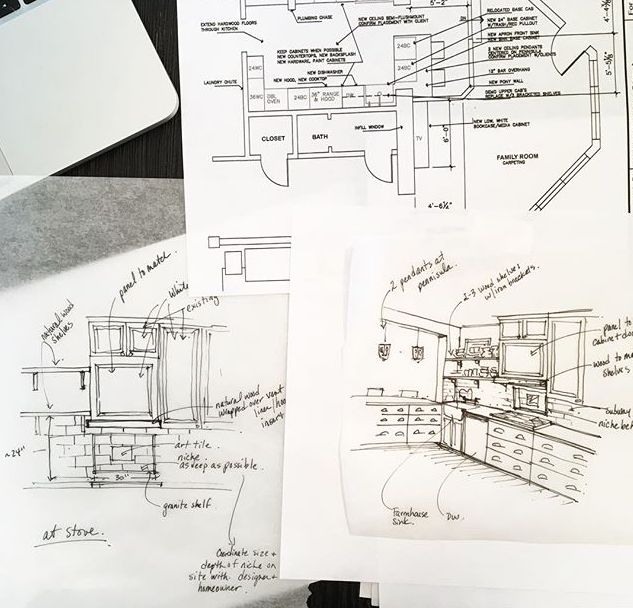 5'-2"
RELOCATED BASE CAB
NEW 24" BASE CABINET
W/TRASH/RED PULLOUT
PLUMBING CHASE
NEW CEILING SEMI-FLUSHMOUNT
CONFIRM PLACEMENT WITH CLIENT
NEW APRON FRONT SINK
NEW SINK BASE CABINET
EXTEND HARDWOOD FLOORS
THROUGH KITCHEN
KEEP CABINETS WHEN POSSIBLE
NEW COUNTERTOPS, NEW BACKSPLASH
NEW HARDWARE, PAINT CABINETS
24BC
24BC
NEW CEILING PENDANTS
CENTERED ON PENINSULA
CONFIRM PLACEMENT W/CLIENTS
5'-5⅝"
NEW DISHWASHER
12" BAR OVERHANG
24WC
NEW HOOD, NEW COOKTOP
NEW PONY WALL
LAUNDRY CHUTE
DEMO UPPER CAB'S
REPLACE W/3 BRACKETED SHELVES
36WC
DBL
OVEN
24BC
36" RANGE
& HOOD
DW
CLOSET
BATH
INFILL WINDOW
TV
6'-0"
NEW LOW, WHITE
BOOKCASE/MEDIA CABINET
FAMILY ROOM
CARPETING
4'-6½"
natural wood
shelves
panel to match
White
existing
natural wood
wrapped over vent
art tile
niche
as deep as possible.
~24"
30"
granite shelf.
at stove.
Coordinate size +
depth of niche on
site with designer +
homeowner.
2 pendants at
penninsula.
2-3 wood shelves
w/iron brackets.
panel to
cabinet doo
wood to ma
shelves
subway
niche beh
Farmhouse
sink.
DW.